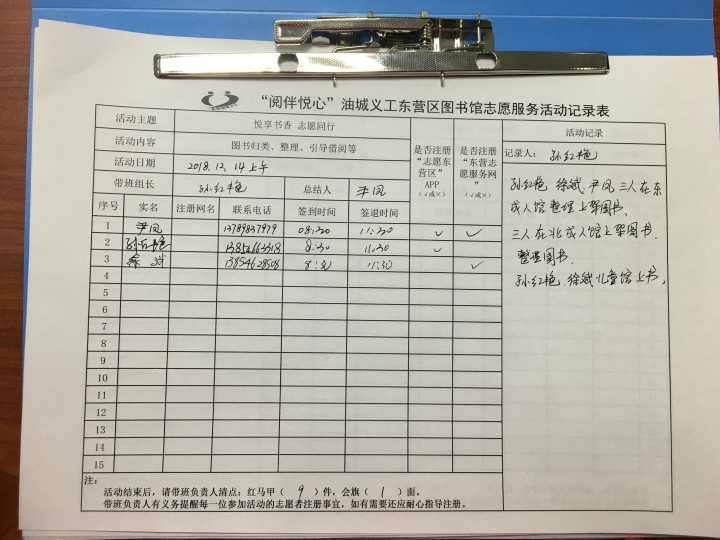 “阅伴悦心”油城义工东营区图书馆志愿服务活动记录表
活动主题 悦享书香 志愿同行
活动内容 图书归类、整理、引导借阅等
活动日期 2018.12.14上午
带班组长 孙红艳 总结人 尹凤
是否注册“志愿东营区”APP（√或×）
是否注册“东营志愿服务网”（√或×）
序号 实名 注册网名 联系电话 签到时间 签退时间
1 尹凤 13789837979 08:30 11:30 ✓ ✓
2 孙红艳 8:30 11:30 ✓
3 徐斌 13854628508 11:30 ✓
4
5
6
7
8
9
10
11
12
13
14
15
活动记录
记录人：孙红艳
孙红艳 徐斌 尹凤 三人在东
成人馆整理上架图书.
三人在北成人馆上架图书.
整理图书.
孙红艳.徐斌儿童馆上书。
注：
活动结束后，请带班负责人清点：红马甲（ 9 ）件，会旗（ 1 ）面。
带班负责人有义务提醒每一位参加活动的志愿者注册事宜，如有需要还应耐心指导注册。